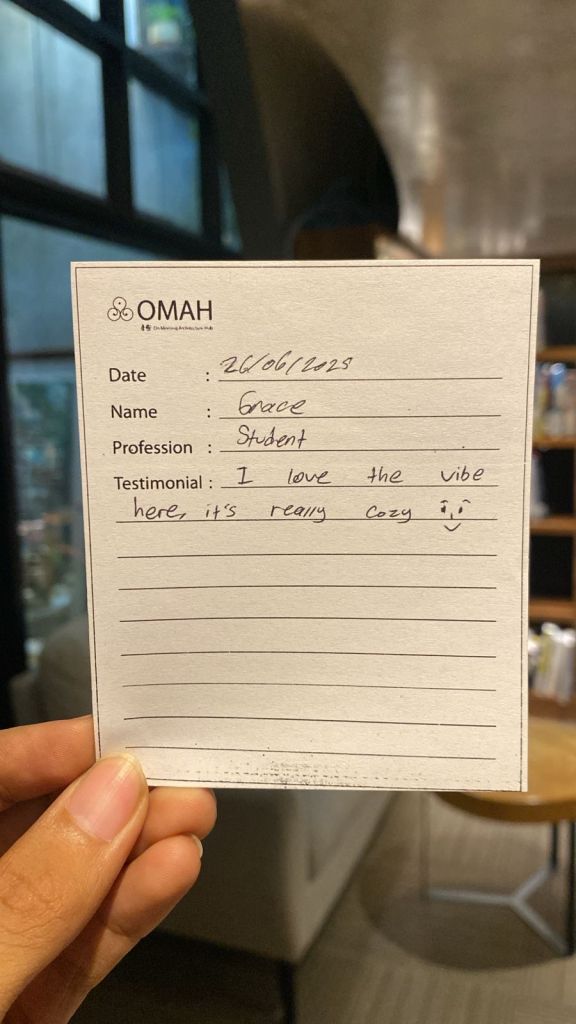 OMAH
Date : 26/06/2025
Name : Grace
Profession : Student
Testimonial : I love the vibe
here, it's really cozy